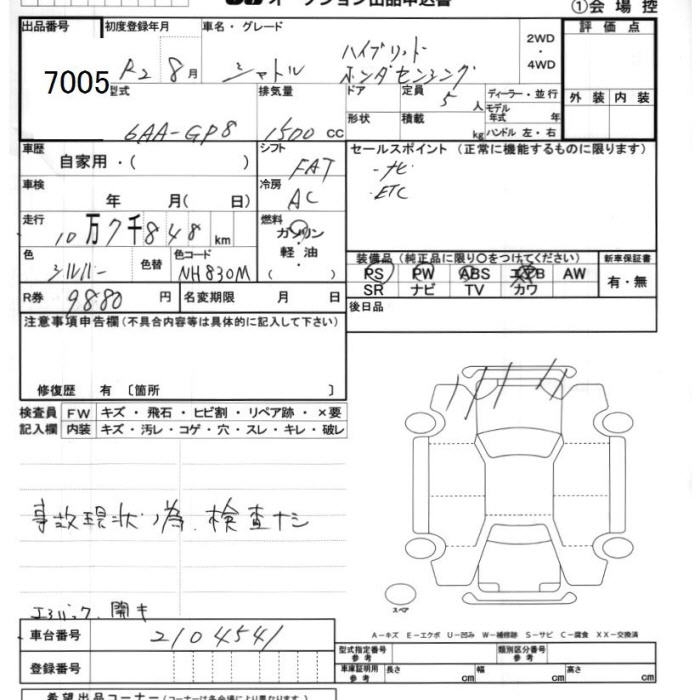 ①会場控
出品番号 初度登録年月 車名・グレード 評価点
7005 R2 8月 シャトル ハイブリット ホンダセンシング 2WD・4WD
型式 排気量 ドア 定員 5人 ディーラー・並行 外装 内装
6AA-GP8 1500cc 形状 積載 kg モデル年式 年 ハンドル 左・右
車歴 シフト セールスポイント (正常に機能するものに限ります)
自家用・( ) FAT ・ナビ
車検 冷房 ・ETC
年 月( 日) AC
走行 燃料
10万7千848km ガソリン・軽油・( )
色 色替 色コード 装備品 (純正品に限り○をつけてください) 新車保証書
シルバー NH830M PS PW ABS エアB AW 有・無
SR ナビ TV カワ
R券 9880円 名変期限 月 日 後日品
注意事項申告欄(不具合内容等は具体的に記入して下さい)
修復歴 有 〔箇所 〕
検査員 FW キズ・飛石・ヒビ割・リペア跡・×要
記入欄 内装 キズ・汚レ・コゲ・穴・スレ・キレ・破レ
事故現状ノ為、検査ナシ
エアバック、開キ
スペア
車台番号 2104541
A-キズ E-エクボ U-凹み W-補修跡 S-サビ C-腐食 XX-交換済
登録番号
型式指定番号 参考 類別区分番号 参考
車庫証明用 参考 長さ cm 幅 cm 高さ cm
希望出品コーナー